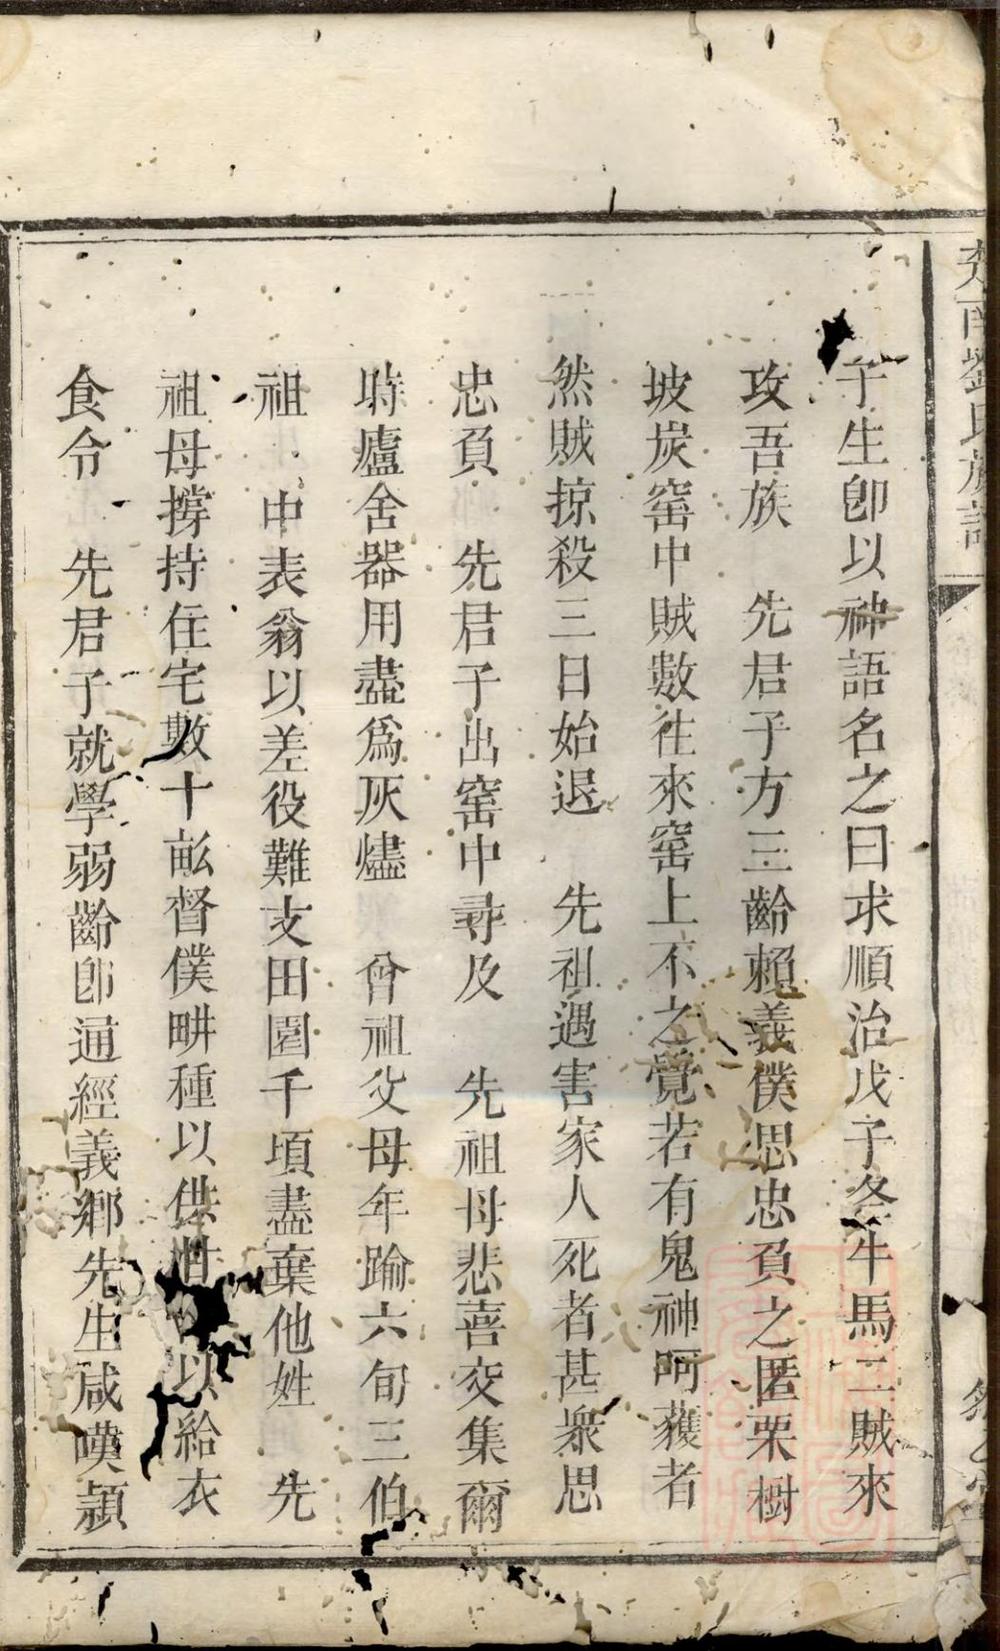 于生卽以神語名之曰求順治戊子冬牛馬二賊來
攻吾族 先君子方三齡賴義僕思忠負之匿栗樹
坡炭窰中賊數徃來窰上不之覺若有鬼神呵護者
然賊掠殺三日始退 先祖遇害家人死者甚衆思
忠負 先君子出窰中尋及 先祖母悲喜交集爾
時廬舍器用盡爲灰燼 曾祖父母年踰六旬三伯
祖 中表翁以差役難支田園千頃盡棄他姓 先
祖母撐持住宅數十畝督僕畊種以供 以給衣
食令 先君子就學弱齡卽通經義鄕先生咸嘆頴
南劉氏族譜